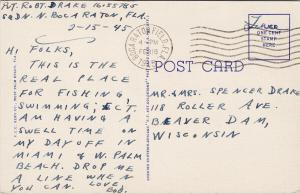 PVT. ROBT. DRAKE 16155765
SQDN. N. BOCA RATON, FLA.
2-15-45
HI FOLKS,
THIS IS THE
REAL PLACE
FOR FISHING
SWIMMING, ECT.
AM HAVING A
SWELL TIME ON
MY DAY OFF IN
MIAMI & W. PALM
BEACH. DROP ME
A LINE WHEN
YOU CAN. LOVE,
BOB.
BOCA RATON FIELD, FLA.
FEB
POST CARD
ONE CENT
STAMP
HERE
MR. & MRS. SPENCER DRAKE
118 ROLLER AVE.
BEAVER DAM,
WISCONSIN